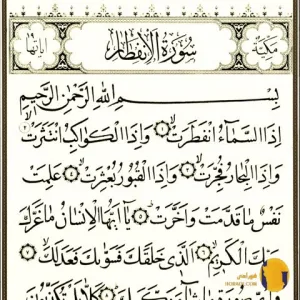 مكية
سورة الانفطار
آياتها ١٩
بِسْمِ اللَّهِ الرَّحْمَٰنِ الرَّحِيمِ
إِذَا السَّمَاءُ انفَطَرَتْ ۝ وَإِذَا الْكَوَاكِبُ انتَثَرَتْ ۝
وَإِذَا الْبِحَارُ فُجِّرَتْ ۝ وَإِذَا الْقُبُورُ بُعْثِرَتْ ۝ عَلِمَتْ
نَفْسٌ مَا قَدَّمَتْ وَأَخَّرَتْ ۝ يَا أَيُّهَا الْإِنْسَانُ مَا غَرَّكَ
بِرَبِّكَ الْكَرِيمِ ۝ الَّذِي خَلَقَكَ فَسَوَّىٰكَ فَعَدَلَكَ ۝
كَلَّا بَلْ تُكَذِّبُونَ